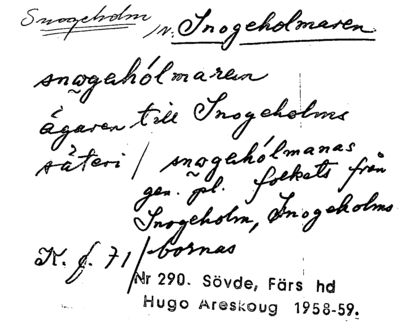 Snogeholm
/n. Snogeholmaren
snωgəhólmarən
ägaren till Snogeholms
säteri / snωgəhólmanas
gen. pl. folkets från
Snogeholm, Snogeholms
K. f. 71 / bornas
Nr 290. Sövde, Färs hd
Hugo Areskoug 1958-59.